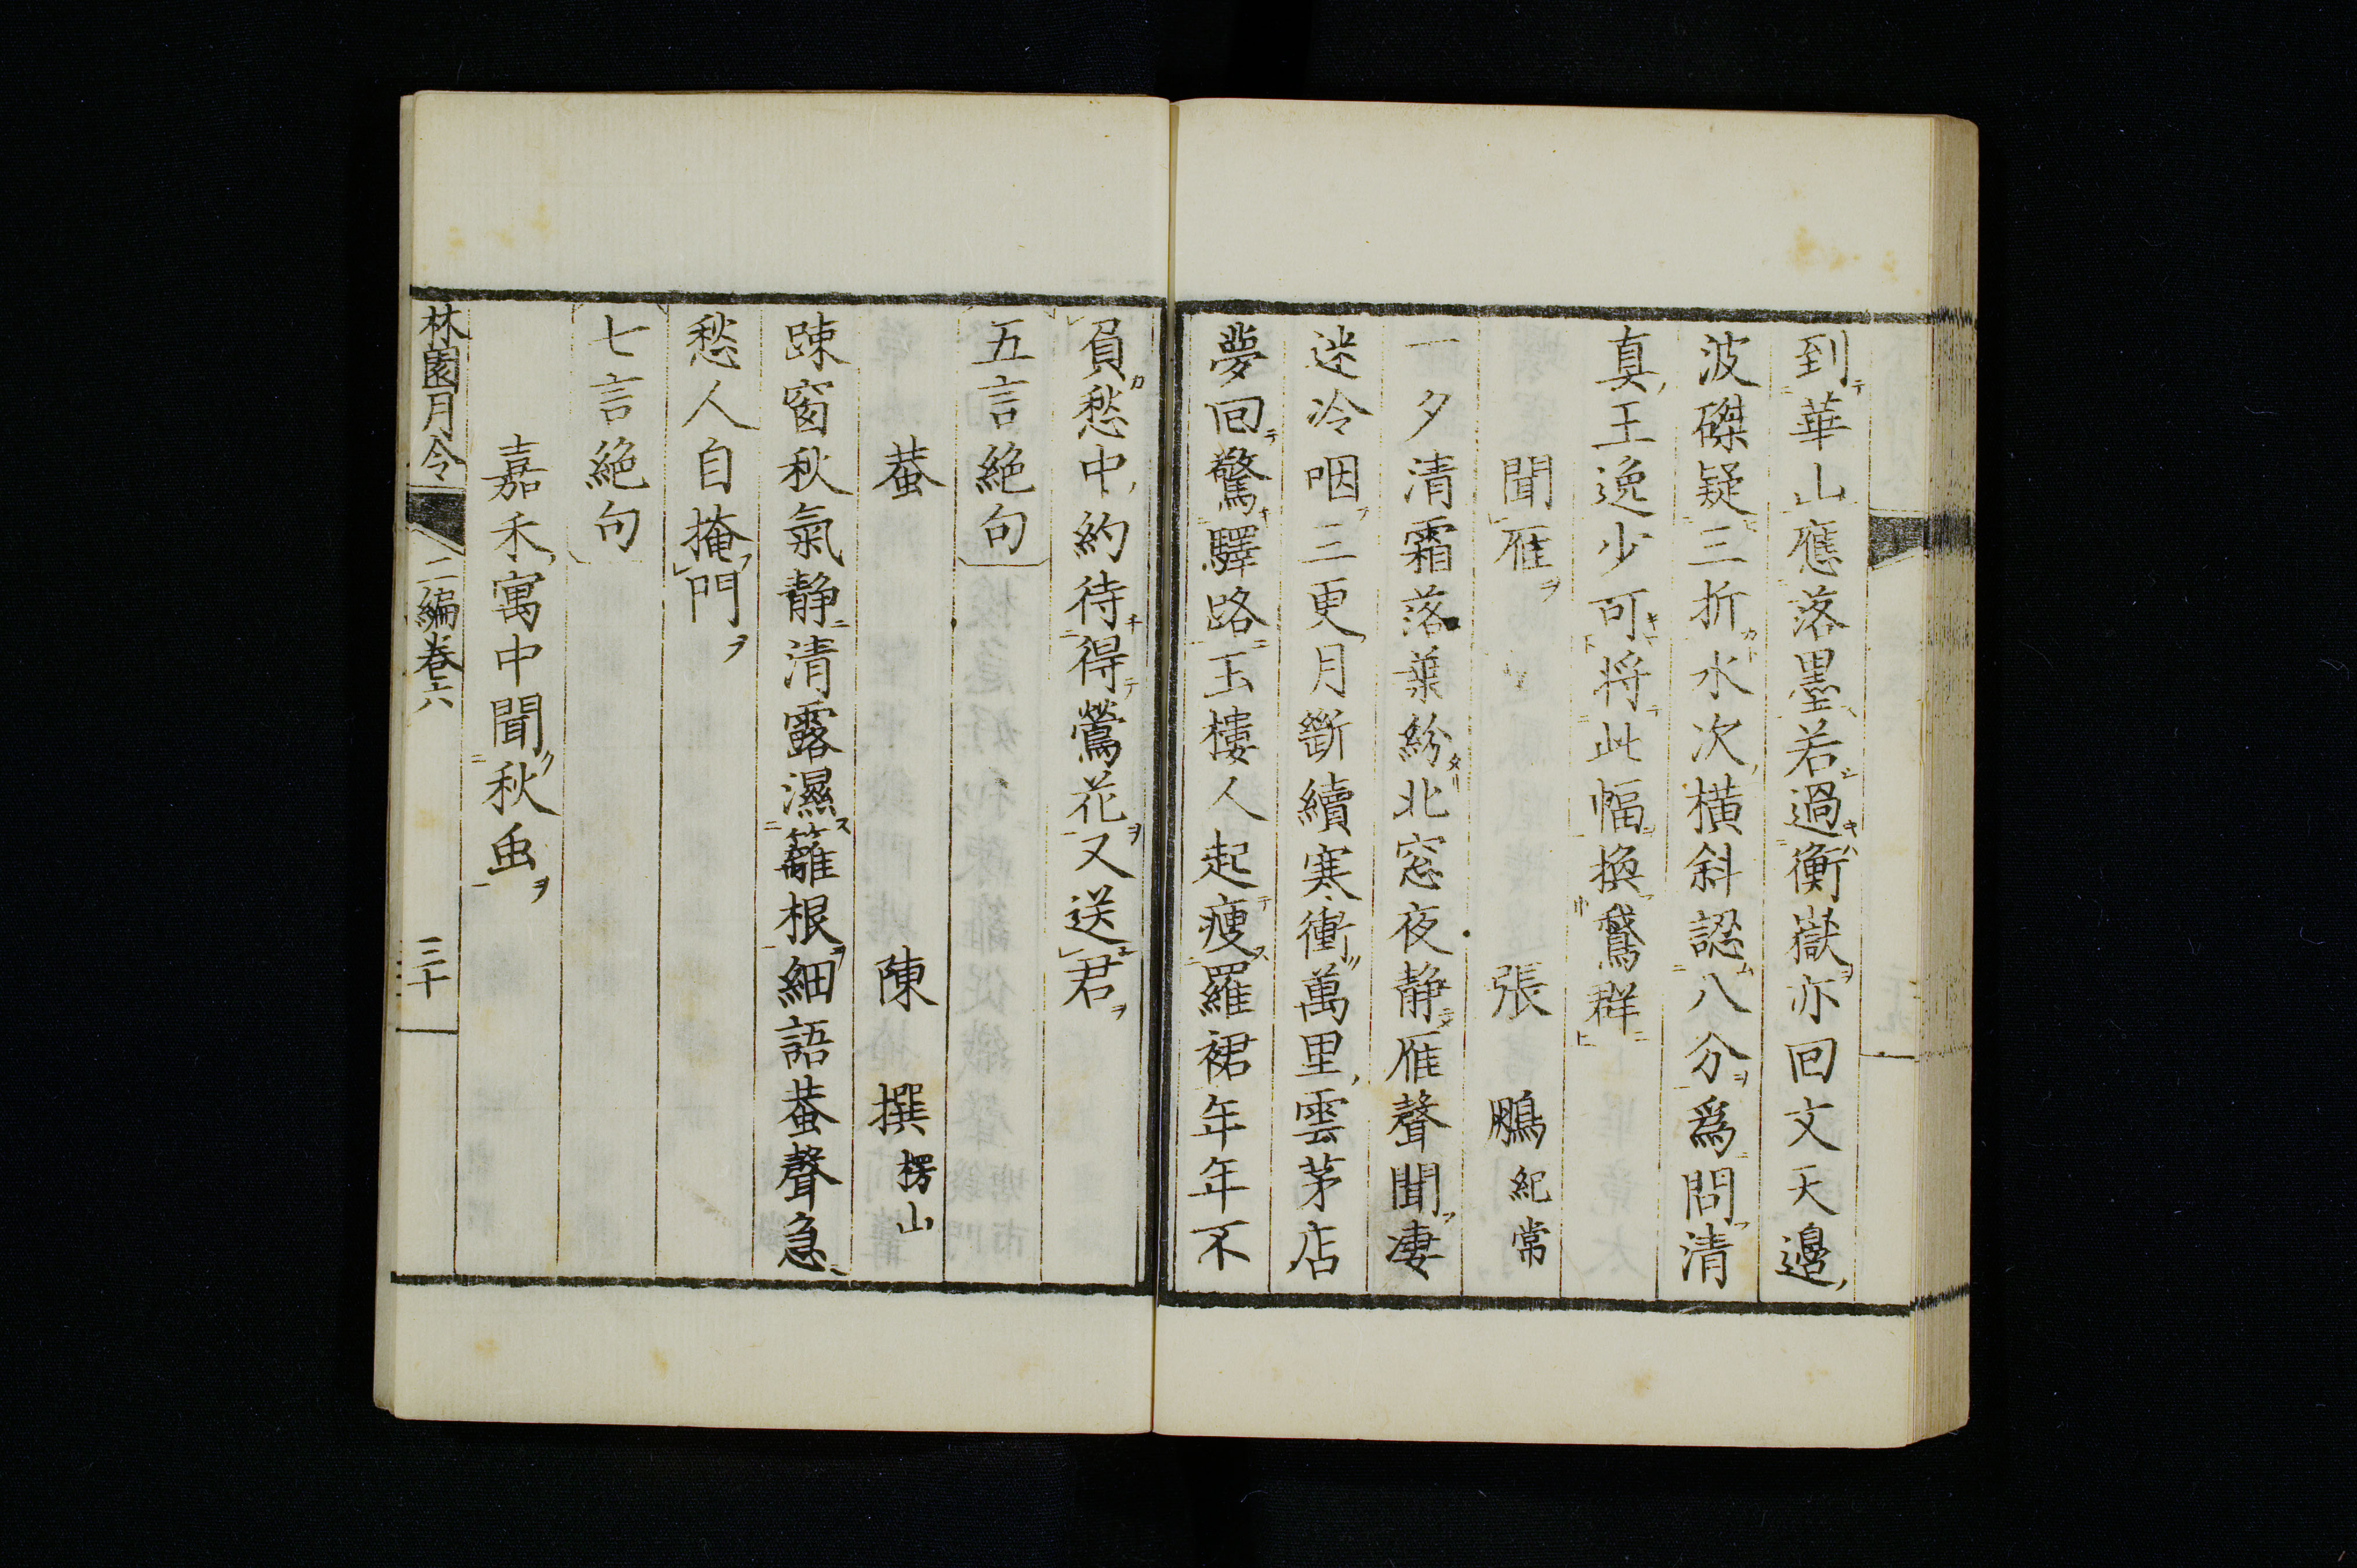 到華山應落墨若過衡嶽亦回文天邊
波磔疑三折水次橫斜認八分爲問清
真王逸少可將此幅換鵞群
聞雁 張 鵬紀常
一夕清霜落葉紛北窓夜静雁聲聞凄
迷冷咽三更月斷續寒衝萬里雲茅店
夢回驚驛路玉樓人起瘦羅裙年年不
負愁中約待得鶯花又送君
五言絶句
蛬 陳 撰楞山
踈窗秋氣静清露濕籬根細語蛬聲急
愁人自掩門
七言絶句
嘉禾寓中聞秋虫
林園月令 二編卷六 三十